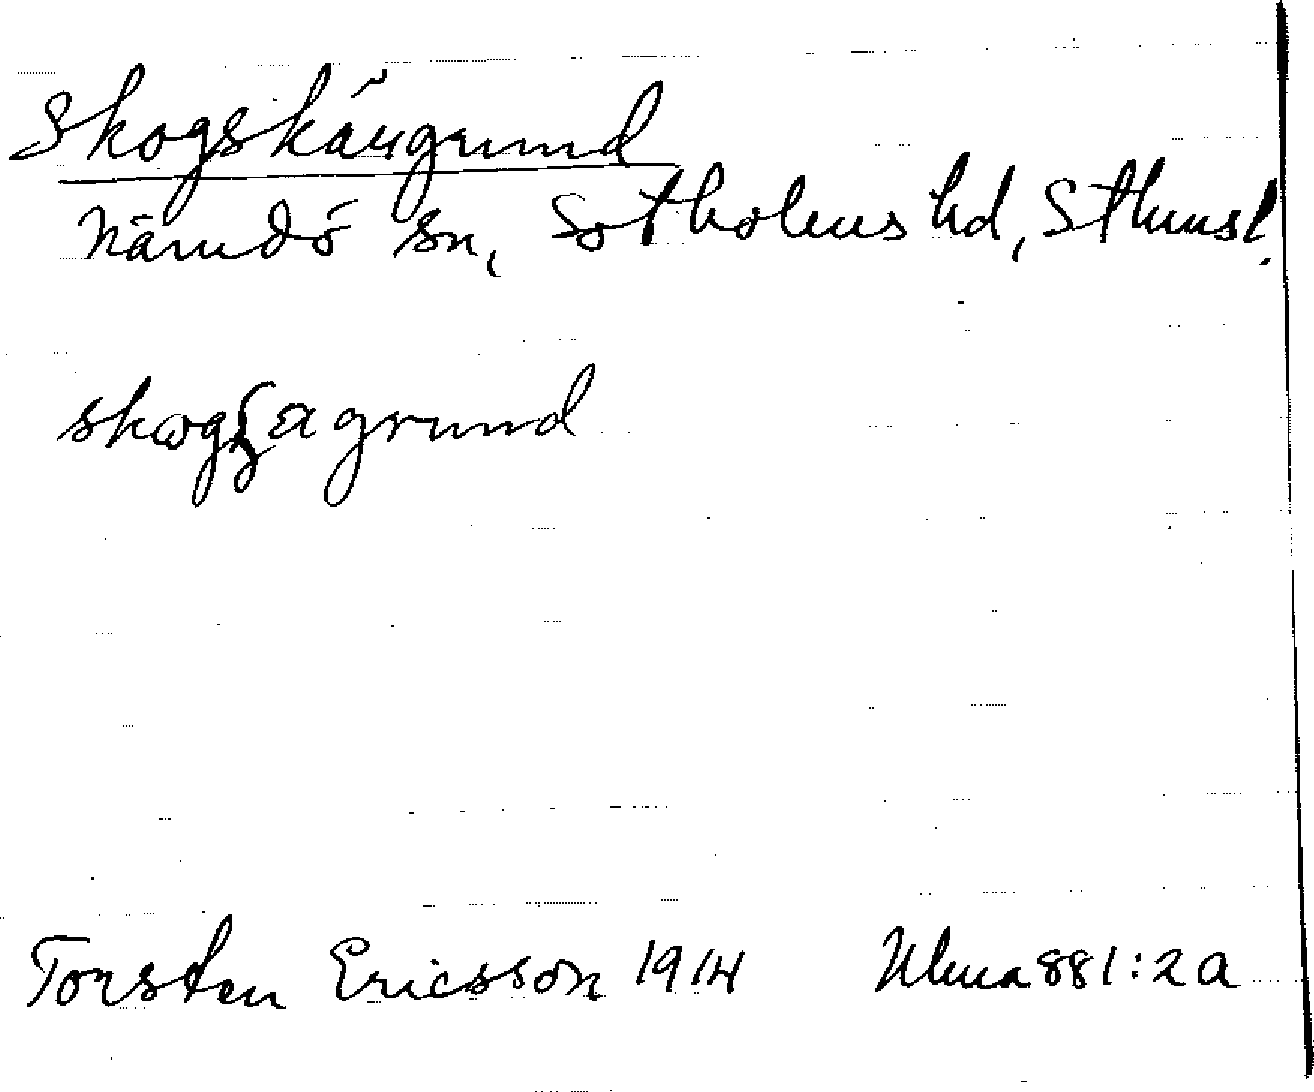 Skogskärgrund
Nämdö sn, Sotholms hd, Sthmsl.
grund
Torsten Ericsson 1914 Ulma 881:2a